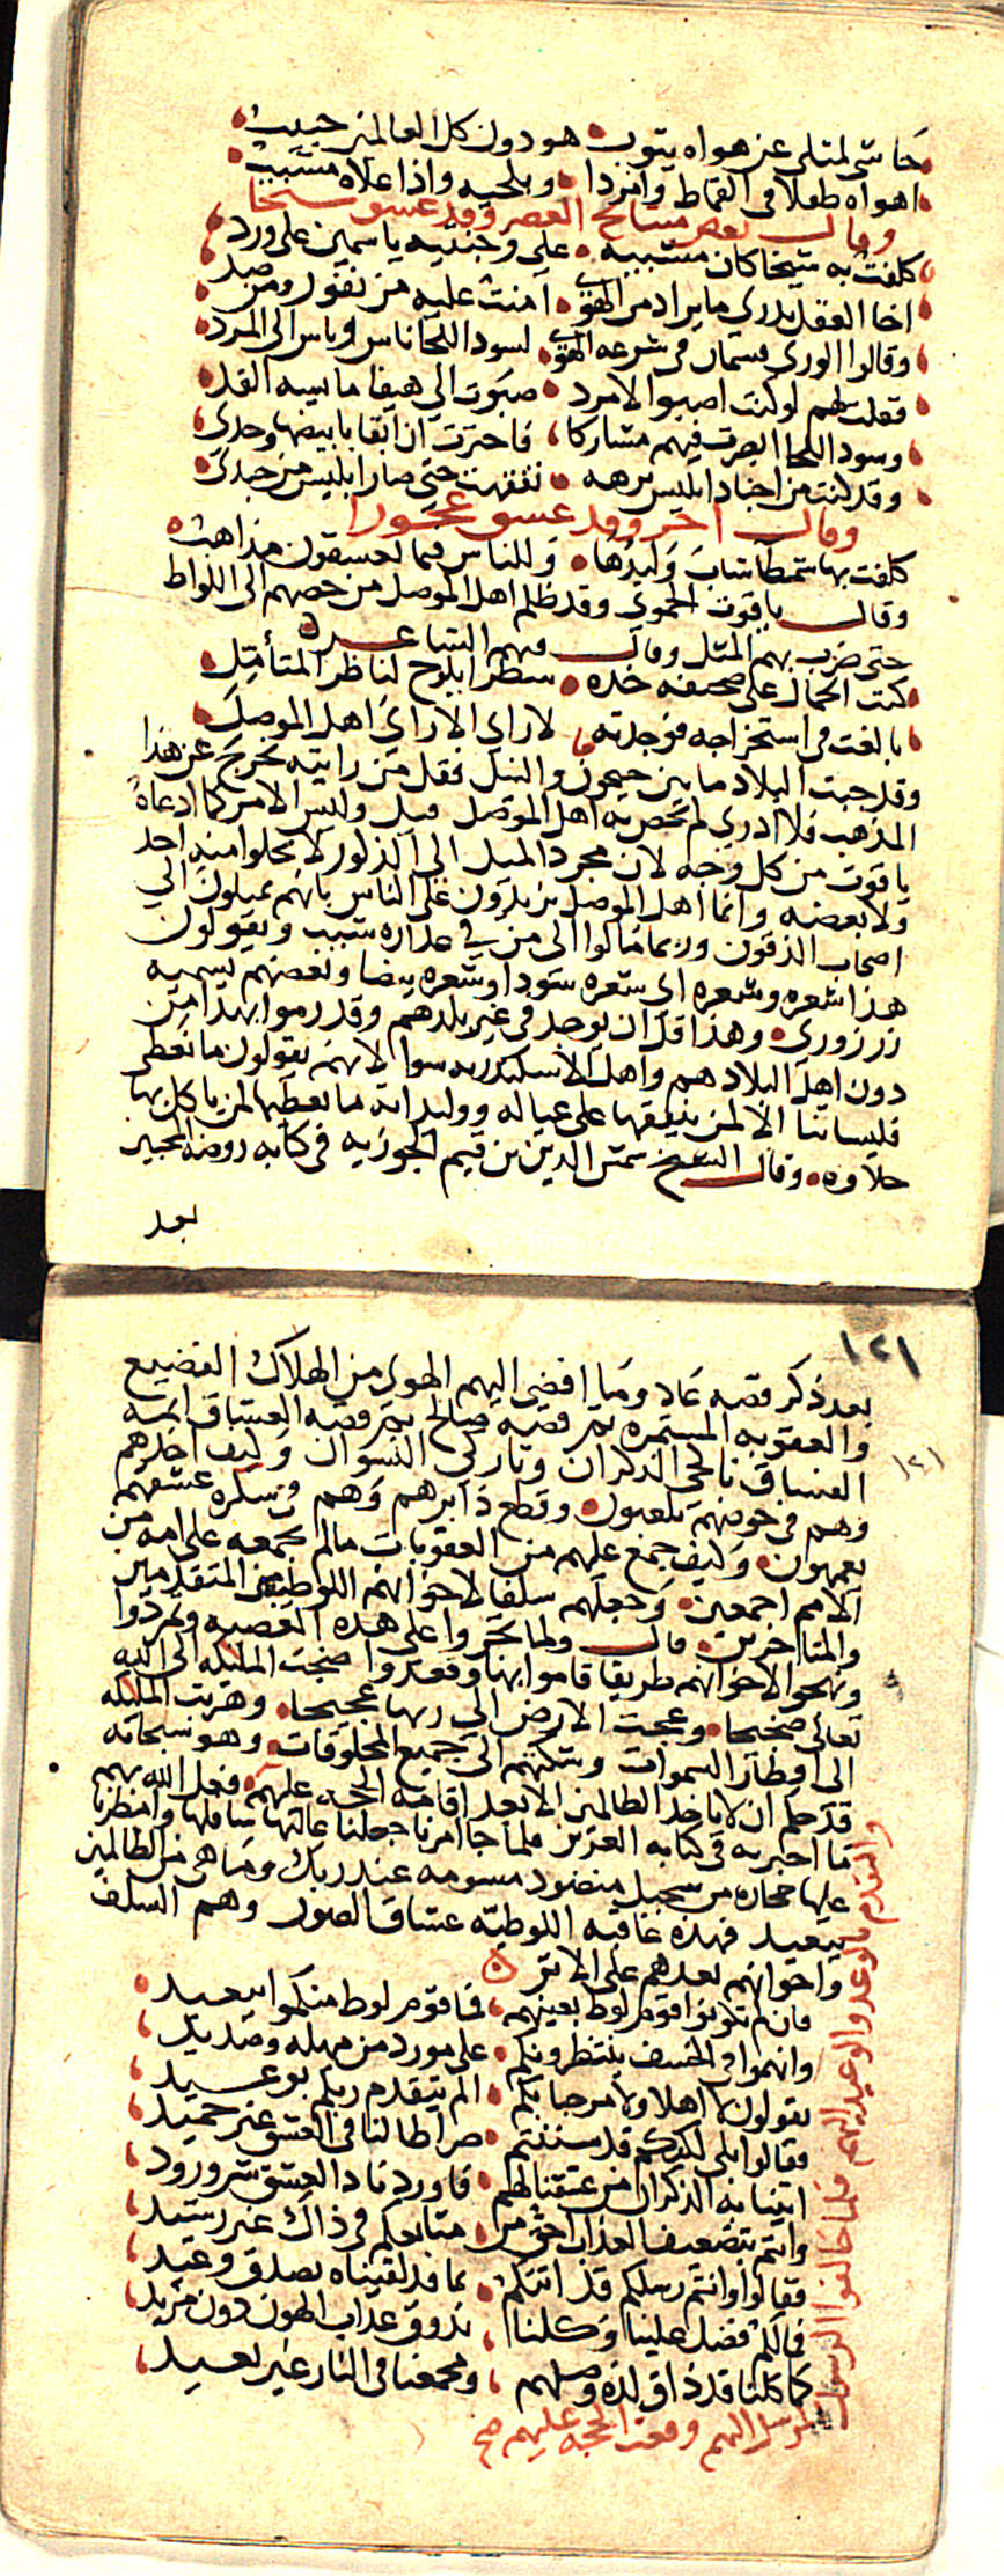 حاشى لمثلى عن هواه يتوب هو دون كل العالمين حبيب
اهواه طفلا فى القماط وامردا وبلحيه واذا علاه مشيب
وقال بعض مشايخ العصر وقد عشق شيخا
كلفت به شيخا كان مشيبه على وجنتيه ياسمين على ورد
اخا العقل يدرى ما يراد من الهوى امنت عليه من نفور ومن صد
وقالوا الورى قسمان فى شرعه الهوى لسود اللحا ناس وناس الى المرد
فقلت لهم لو كنت اصبو الامرد صبوت الى هيفا مايسه القد
وسود اللحا ابصرت فيهم مشاركا فاخترت ان ابقا بابيضها وحدى
وقد كنت من اجناد ابليس برهه تفقهت حتى صار ابليس من جندى
وقال اخر وقد عشق عجوزا
كلفت بها شمطا شاب وليدها وللناس فيما يعشقون مذاهب
وقال ياقوت الحموى وقد ظلم اهل الموصل من خصهم الى اللواط
حتى ضرب بهم المثل وقال فيهم الشاعر
كتب الجمال على صحيفه خده سطرا يلوح لناظر المتأمل
بالغت فى استخراجه فوجدته لا راى الا راى اهل الموصل
وقد جبت البلاد ما بين جيحون والنيل فقل من رايته يخرج عن هذا
المذهب فلا ادرى لم تحصر به اهل الموصل قيل وليس الامر كما ادعاه
ياقوت من كل وجه لان مجرد الميل الى الذكور لا يخلوا منه احد
ولا بعضه وانما اهل الموصل يزيدون على الناس بانهم يميلون الى
اصحاب الذقون وربما مالوا الى من فى عذاره شيب ويقولون
هذا شعره وشعره اى شعره سودا وشعره بيضا وبعضهم يسميه
زرزورى وهذا قل ان يوجد فى غير بلدهم وقد رموا بهذا من
دون اهل البلاد هم واهل الاسكندريه سوا لانهم يقولون ما نعطى
فليساتنا الا لمن ينفقها على عياله ووليداته ما نعطيها لمن ياكل بها
حلاوه وقال الشيخ شمس الدين بن قيم الجوزيه فى كتابه روضه المحبين
بعد
١٢١
بعد ذكر قصه عاد وما افضى اليهم الهوى من الهلاك الفضيع
والعقوبه المستمره ثم قصه صالح ثم قصه العشاق ايمه
١٢١
الفساق ناكحى الذكران وتاركى النسوان وكيف اخذهم
وهم فى خوضهم يلعبون وقطع دابرهم وهم فى سكره عشقهم
يعمهون وكيف جمع عليهم من العقوبات ما لم يجمعه على امه من
الامم اجمعين وجعلهم سلفا لاخوانهم اللوطيه من المتقدمين
والمتاخرين قال ولما تجروا على هذه المعصيه وتمردوا
ونهجوا لاخوانهم طريقا قاموا بها وقعدوا ضجت المليكه الى الله
تعالى ضجيجا وعجت الارض الى ربها عجيجا وهربت المليكه
الى اقطار السموات وشكتهم الى جميع المخلوقات وهو سبحانه
قد حكم ان لا ياخذ الظالمين الا بعد اقامه الحجه عليهم فعل الله بهم
ما اخبر به فى كتابه العزيز فلما جا امرنا جعلنا عاليها سافلها وامطرنا
عليها حجاره من سجيل منضود مسومه عند ربك وما هى من الظالمين
ببعيد فهذه عاقبه اللوطيه عشاق الصور وهم السلف
واخوانهم بعدهم على الاثر
فان لم تكونوا قوم لوط بعينهم فما قوم لوط منكموا ببعيد
وانهموا فى الخسف ينتظرونكم على مورد من مهله وصديد
يقولون لا اهلا ولا مرحبا بكم الم يتقدم ربكم بوعيد
فقالوا بلى لكنكم قد سننتم صراطا لنا فى العشق غير حميد
اتينا به الذكران من عشقنا لهم فاوردنا ذا العشق شر ورود
وانتم بتضعيف العذاب احق من متابعكم فى ذاك غير رشيد
فقالوا وانتم رسلكم قد اتتكم بما قد لقيناه بصدق وعيد
فما لكم فضل علينا وكلنا نذوق عذاب الهون دون مزيد
كما كلنا قد ذاق لذه وصلهم ومجمعنا فى النار غير بعيد
والتقدم بالوعد والوعيد اليهم فلما خالفوا الرسول
المرسل اليهم وقعت الحجه عليهم صح